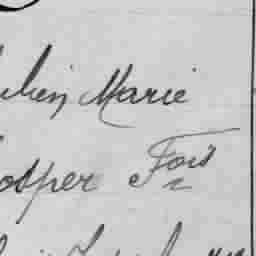 ulien Marie
osper Fois